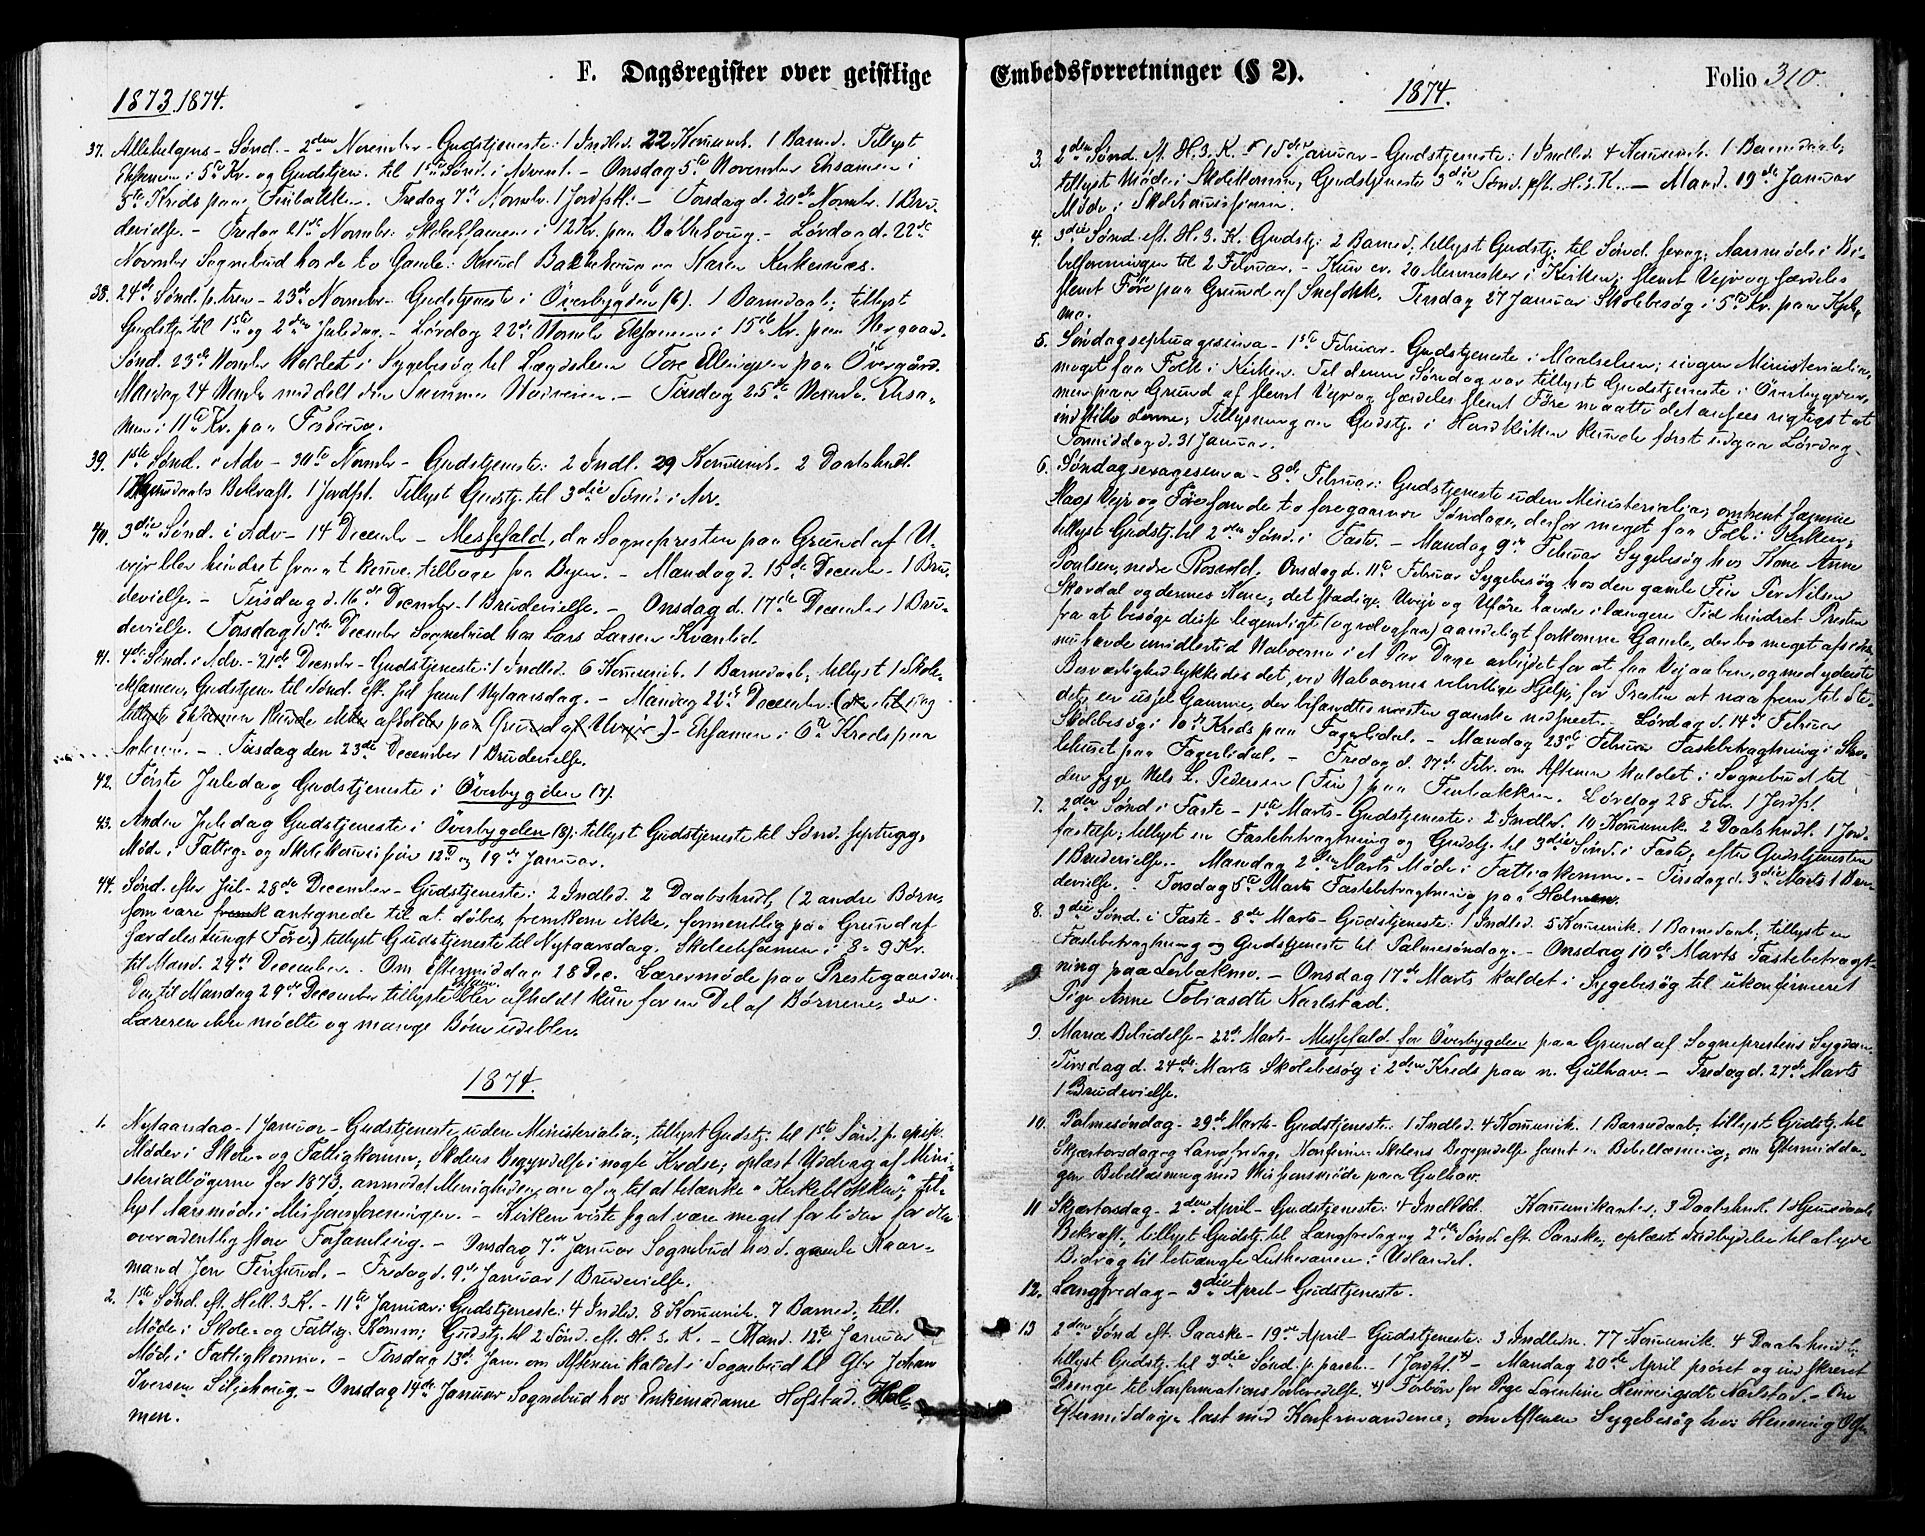 F. Dagsregister over geistlige
1873.1874.
37. Allehelgens - Sønd. - 2den November - Gudstjeneste: 1 Indled. 22 Kommunik. 1 Barned. Tillyst
Eksamen i 5te Kr. og Gudstjen. til 1ste Sønd. i Advent. - Onsdag 5te November Eksamen i
5te Kreds paa Finbakken. Fredag 7de Novmbr. 1 Jordfst. - Torsdag d. 20de Novmbr. 1 Bru-
devielse. - Fredag 21de Novmbr. Skoleeksamen i 12 Kr. paa Bakkehoug. - Lørdag d. 22de
Novmbr. Sognebud hos de to Gamle: Knud Bakkehoug og Karen Kirkesnæs.
38. 24de Sønd. p. tren - 23de Novmbr - Gudstjeneste i Överbygden (6). 1 Barnedaab; tillyst
Gudstj. til 1ste og 2den Juledag. - Lørdag 22de Novmbr Eksamen i 15de Kr. paa Nergaard.
Sønd. 23de Novmbr kaldet i Sygebesøg til Lægdslem Tore Ellingsen paa Övergård.
Mandag 24 Novmbr meddelt den Samme Nadveren. - Tirsdag 25de Novmbr. Eksa-
men i 11te Kr. paa
39. 1ste Sønd. i Adv - 30te Novmbr - Gudstjeneste: 2 Indl. 29 Kommunik. 2 Daabshndl.
1 Hjemmedaabs Bekræft. 1 Jordfst. Tillyst Gudstj. til 3die Sønd. i Adv.
40. 3die Sønd. i Adv - 14 Decembr - Messefald, da Sognepresten paa Grund af U-
vejr blev hindret fra at komme tilbage fra Byen. - Mandag d. 15de Decembr - 1 Bru-
devielse. - Tirsdag d. 16de Decembr. 1 Brudevielse. - Onsdag d. 17de Decembr 1 Bru-
devielse. Torsdag 18de Decembr Sognebud hos Lars Larsen Kvanlid.
41. 4de Sønd. i Adv. - 21de Decembr - Gudstjeneste: 1 Indled. 6 Kommunik. 1 Barnedaab, tillyst 1 Skole-
eksamen, Gudstjen. til Sønd. eft. Jul samt Nytaarsdag. - Mandag 22de Decembr. (den til idag
tillyste Eksamen kunde ikke afholdes paa Grund af Uvejr) - Eksamen i 6te Kreds paa
Sætermo. - Tirsdag den 23de December 1 Brudevielse.
42. Første Juledag Gudstjeneste i Överbygden (7).
43. Anden Juledag Gudstjeneste i Överbygden (8): tillyst Gudstjeneste til Sønd. septuag.,
Møde i Fattig- og Skolekommission 12te og 19de Januar.
44. Sønd. efter Jul - 28de December - Gudstjeneste: 2 Indled. 2 Daabshndl, (2 andre Børn,
som vare antegnede til at døbes, fremkom ikke, formentlig paa Grund af
særdeles tungt Føre.) tillyst Gudstjeneste til Nytaarsdag. Skoleeksamen i 8 - 9 Kr.
til Mand. 29de December. Om Eftermiddag 28 Dec. Lærermøde paa Prestegaarden.
Den til Mandag 29de December tillyste Eksam. blev afholdt kun for en Del af Børnene, da
Læreren ikke mødte og mange Børn udeblev.
1874.
1. Nytaarsdag - 1 Januar - Gudstjeneste uden Ministerialia; tillyst Gudstj. til 1ste Sønd. p. epiph.
Møder i Skole- og Fattigkomm; Skolens Begyndelse i nogle Kredse; oplæst Uddrag af Mini-
sterialbøgerne for 1873. anmodet Menigheden om af og til at betænke "Kirkeblokken," til-
lyst Aarsmøde i Missionsforeningen. - Kirken viste sig at være meget for liden for den
overordentlig store Forsamling. - Onsdag 7de Januar Sognebud hos d. gamle Kaar-
mand Jon Finsund. - Fredag d. 9de Januar 1 Brudevielse.
2. 1ste Sønd. eft. Hell. 3. K. - 11te Januar: Gudstjeneste: 4 Indled. 8 Kommunik. 7 Barned; till.
Møde i Skole- og Fattig-Komm; Gudstj. til 2 Sønd. eft. H. 3. K. - Mand. 12te Januar
Møde i Fattigkomm. - Tirsdag 13de Jan. om Aftenen kaldet i Sognebud til Gbr. Johan
Iversen Siljehaug. - Onsdag 14de Januar Sognebud hos Enkemadame Hofstad. Hol-
men.
Embedsforretninger (§ 2). Folio 310.
1874.
3. 2den Sønd. ef. H. 3. K. - 18de Januar - Gudstjeneste: 1 Indled. 4 Kommunik. 1 Barnedaab;
tillyst Møde i Skolekomm, Gudstjeneste 3die Sønd. eft. H. 3. K. - Mand. 19de Januar
Møde i Skolekommissionen.
4. 3die Sønd. eft. H. 3. K. Gudstj: 2 Barned; tillyst Gudstj. til Sønd. sexag; Aarsmøde i Bi-
belforeningen til 2 Februar. - Kun ca. 20 Mennesker i Kirken; slemt Vejr og særdeles
slemt Føre paa Grund af Snefokk. Tirsdag 27 Januar Skolebesøg i 5te Kr. paa
mo.
5. Søndag septuagesima - 1ste Februar - Gudstjeneste i Maalselven; ingen Ministerialia,
meget faa Folk i Kirken. Til denne Søndag var tillyst Gudstjeneste i Överbygden,
men paa Grund af slemt Vejr og særdeles slemt Føre maatte det ansees rigtigst at
indstille denne; Tillysning om Gudstj. i Hovedkirken kunde først udgaa Lørdag
Formiddag d. 31 Januar.
6. Søndag sexagesima - 8de Februar: Gudstjeneste uden Ministerialia; omtrent samme
Slags Vejr og Føre som de to foregaaende Søndage, derfor meget faa Folk i Kirken;
tillyst Gudstj. til 2den Sønd. i Faste. - Mandag 9de Februar Sygebesøg hos Kone Anne
Poulsen, nedre Rosvold. Onsdag d. 11te Februar Sygebesøg hos den gamle Fin Per Nilsen
Skardal og dennes Kone; det stadige Uvejr og Uføre havde i længere Tid hindret Presten
fra at besøge disse legemligt (og ogsaa) aandeligt forkomne Gamle, der bo meget afsides,
nu havde imidlertid Naboerne i et Par Dage arbejdet for at faa Vej aaben, og med yderste
Besværlighed lykkedes det, ved Naboernes velvillige Hjelp, for Presten at naa frem til Ste-
det, en ussel Gamme, der befandtes næsten ganske nedsneet. - Lørdag d. 14de Februar
Skolebesøg i 10de Kreds paa Fagerlidal. - Mandag 23de Februar Fastebetragtning i Sko-
lehuset paa Fagerlidal. - Fredag d. 27de Febr. om Aftenen kaldet i Sognebud til
den syge Nils L. Pedersen (Fin) paa Finbakken. Lørdag 28 Febr. 1 Jordfst.
7. 2den Sønd i Faste - 1ste Marts - Gudstjeneste: 2 Indled. 10 Kommunik. 2 Daabshndl. 1 Jord-
fæstelse; tillyst en Fastebetragtning og Gudstj. til 3die Sønd. i Faste; efter Gudstjenesten
1 Brudevielse. - Mandag 2den Marts Møde i Fattigkomm. - Tirsdag d. 3die Marts 1 Bru-
devielse. - Torsdag 5te Marts Fastebetragtning paa Holmen.
8. 3die Sønd. i Faste - 8de Marts - Gudstjeneste: 1 Indled. 5 Kommunik. 1 Barnedaab; tillyst en
Fastebetragtning og Gudstjeneste til Palmesøndag. - Onsdag 10de Marts Fastebetragt-
ning paa Leibakmo. - Onsdag 17de Marts kaldet i Sygebesøg til ukonfirmeret
Pige Anne Tobiasdtr Karlstad.
9. Mariæ Bebudelse - 22de Marts - Messefald for Överbygden paa Grund af Sogneprestens Sygdom.
Tirsdag d. 24de Marts Skolebesøg i 2den Kreds paa n. Gulhav. - Fredag d. 27de Marts
1 Brudevielse.
10. Palmesøndag - 29de Marts - Gudstjeneste: 1 Indled. 4 Kommunik. 1 Barnedaab; tillyst Gudstj. til
Skjærtorsdag og Langfredag, Konfirm: Skolens Begyndelse samt en Bibellæsning; om Eftermidda-
gen Bibellæsning med Missionsmøde paa Gulhav.
11 Skjærtorsdag - 2den April - Gudstjeneste: 4 Indled. Kommunikanter; 3 Daabshndl. 1 Hjemmedaabs
Bekræft., tillyst Gudstj. til Langfredag og 2den Sønd. eft. Paaske; oplæst Indbydelse til at yde
Bidrag til betrængte Lutheraner i Udlandet.
12. Langfredag - 3die April - Gudstjeneste.
13 2den Sønd eft. Paaske - 19de April - Gudstjeneste: 3 Indledn. 77 Kommunik. 4 Daabshndl;
tillyst Gudstj. til 3die Sønd. p. pasch. - 1 Jordfst. *) - Mandag 20de April prøvet og indskrevet
Drenge til Konfirmationsforberedelse. *) Forbøn for Pige Lorentine Henningsdtr Karlstad. - Om
Eftermiddagen læst med Konfirmanderne; om Aftenen Sygebesøg hos Henning Ols-